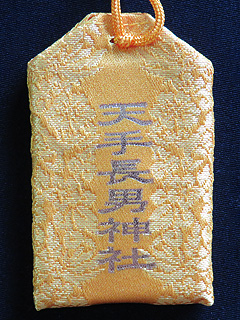 天手長男神社